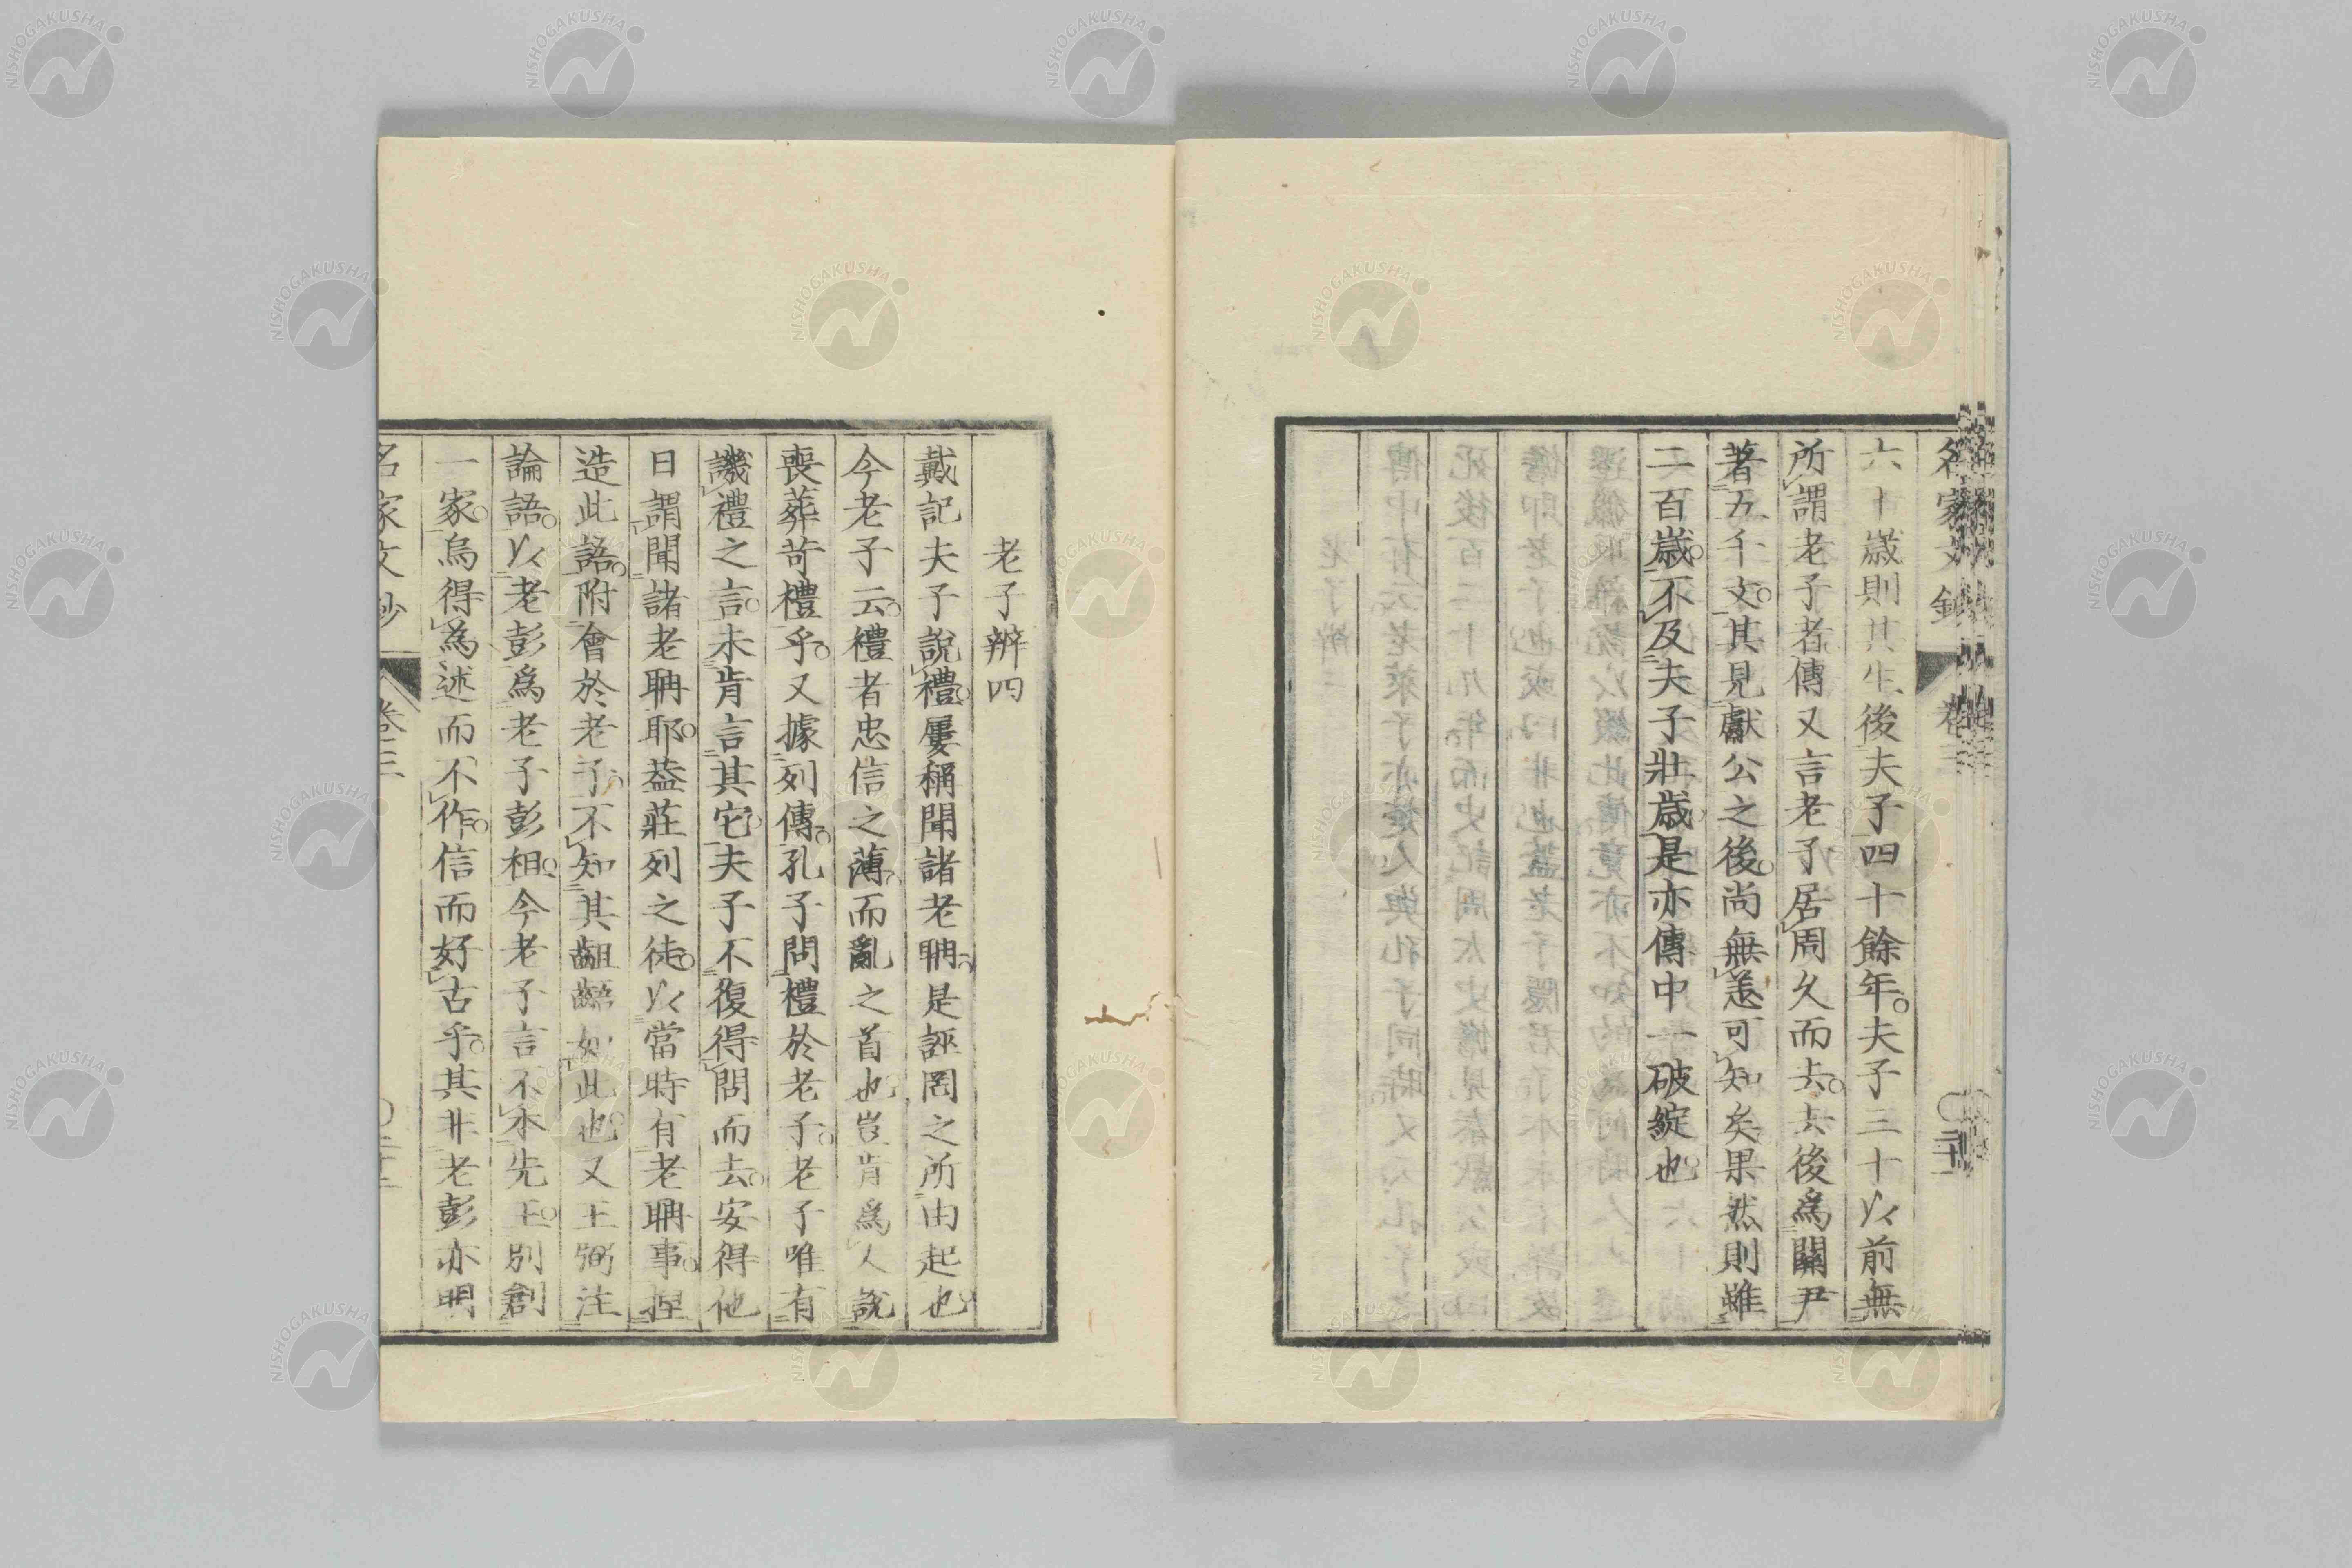 名家文鈔 卷三 〇二十
六十歳則其生後夫子四十餘年。夫子三十以前無
所謂老子者。傳又言老子居周久而去。去後爲關尹
著五千文。其見獻公之後。尚無恙可知矣。果然則雖
二百歳。不及夫子壯歳。是亦傳中一破綻也。
老子辨四
戴記夫子說禮。屢稱聞諸老聃。是誣罔之所由起也。
今老子云。禮者忠信之薄。而亂之首也。豈肯爲人說
喪葬苛禮乎。又據列傳。孔子問禮於老子。老子唯有
譏禮之言。未肯言其它。夫子不復得問而去。安得他
日謂聞諸老聃耶。葢莊列之徒。以當時有老聃事。捏
造此語。附會於老子。不知其齟齬如此也。又王弼注
論語。以老彭爲老子彭祖。今老子言不本先王。別創
一家。烏得為述而不作。信而好古乎。其非老彭亦明
名家文鈔 卷三
NISHOGAKUSHA